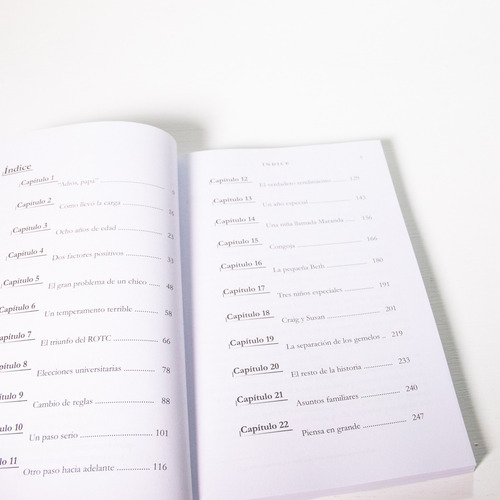 Índice
Capítulo 1
"Adiós, papá" 5
Capítulo 2
Cómo llevó la carga 14
Capítulo 3
Ocho años de edad 23
Capítulo 4
Dos factores positivos 33
Capítulo 5
El gran problema de un chico 48
Capítulo 6
Un temperamento terrible 58
Capítulo 7
El triunfo del ROTC 66
Capítulo 8
Elecciones universitarias 78
Capítulo 9
Cambio de reglas 88
Capítulo 10
Un paso serio 101
Capítulo 11
Otro paso hacia adelante 116
ÍNDICE
Capítulo 12
El verdadero rendimiento 128
Capítulo 13
Un año especial 141
Capítulo 14
Una niña llamada Maranda 156
Capítulo 15
Congoja 166
Capítulo 16
La pequeña Beth 180
Capítulo 17
Tres niños especiales 191
Capítulo 18
Craig y Susan 201
Capítulo 19
La separación de los gemelos 219
Capítulo 20
El resto de la historia 233
Capítulo 21
Asuntos familiares 240
Capítulo 22
Piensa en grande 247